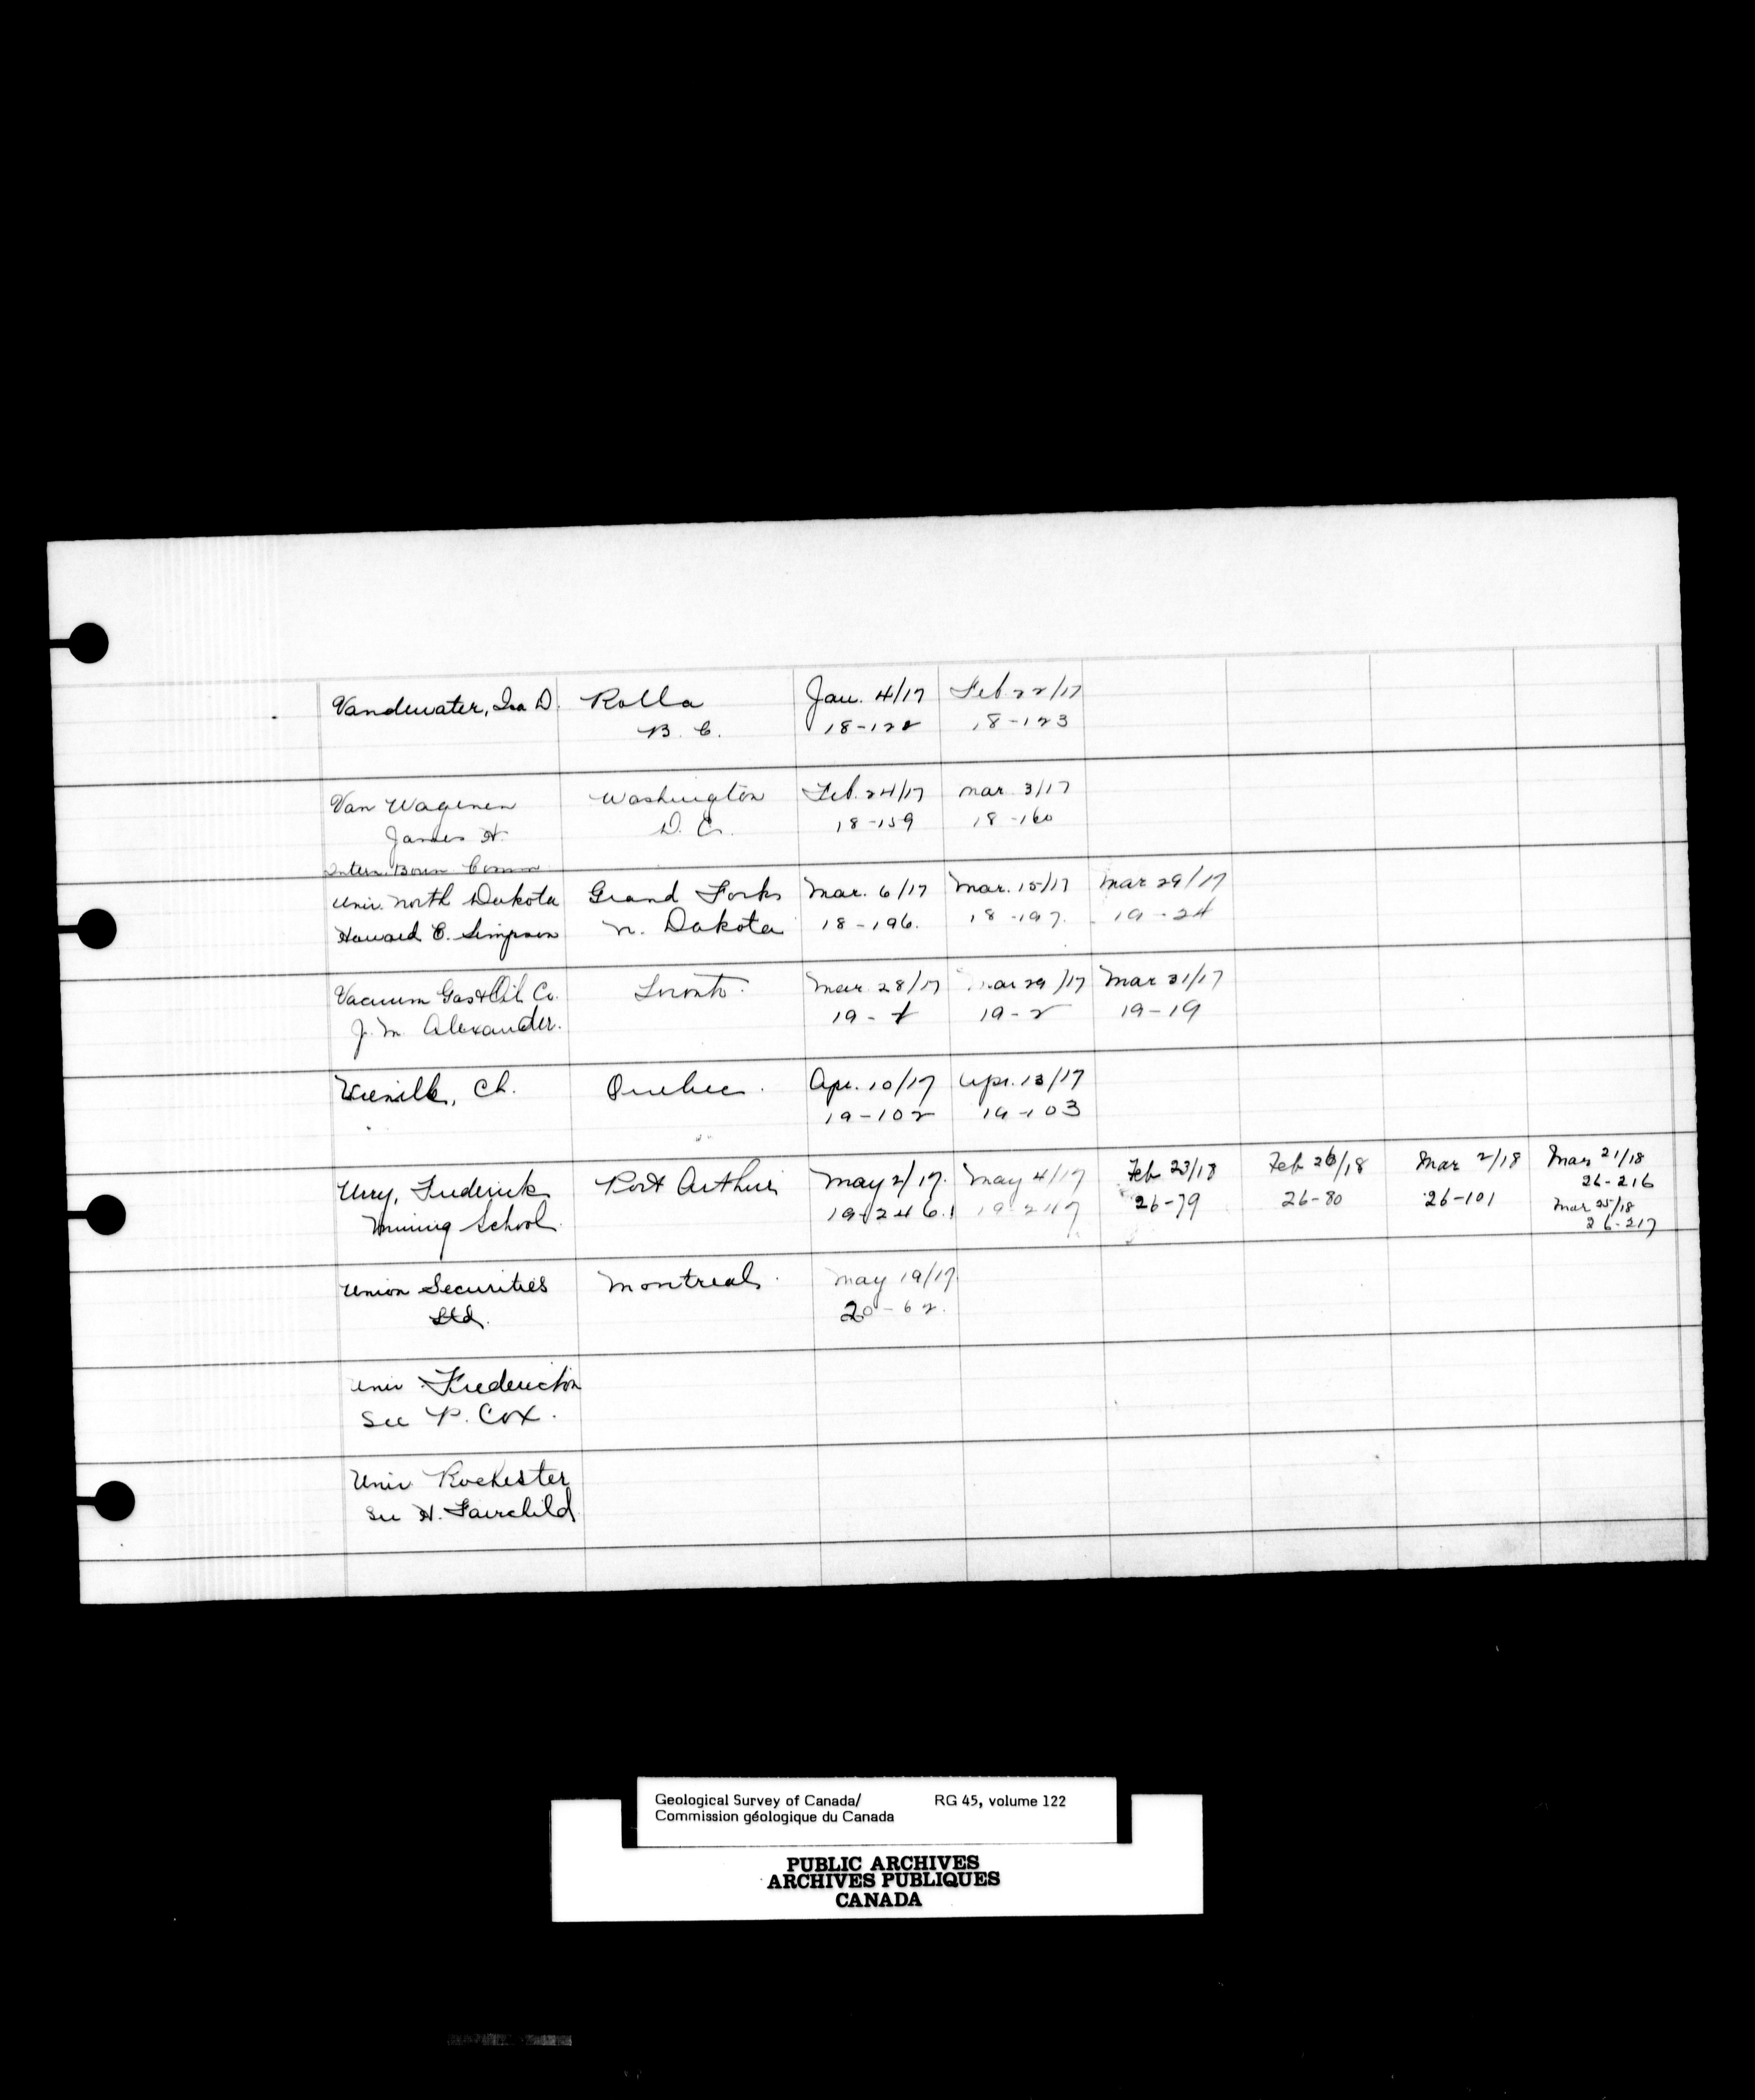 Vandewater, Ira D. Rolla Jan. 4/17 Feb 22/17
B. C. 18-122 18-123
Van Wagenen Washington Feb. 24/17 Mar. 3/17
James H. D. C. 18-159 18-160
Intern. Boun Comm
Univ. North Dakota Grand Forks Mar. 6/17 Mar. 15/17 Mar 29/17
Howard E. Simpson N. Dakota 18-196. 18-197. 19-24
Vacuum Gas & Oil Co. Toronto. Mar. 28/17 Mar 29/17 Mar 31/17
J. M. Alexander. 19- 19-2 19-19
Ch. Quebec. Apr. 10/17 Apr. 13/17
19-102 19-103
Urry, Frederick Port Arthur May 2/17. May 4/17 Feb 23/18 Feb 26/18 Mar 2/18 Mar 21/18
Mining School. 19-246. 19-247 26-79 26-80 26-101 26-216
Mar 25/18
26-217
Union Securities Montreal. May 19/17.
Ltd. 20-62.
Univ. Fredericton
See P. Cox.
Univ. Rochester
See H. Fairchild.
Geological Survey of Canada/ RG 45, volume 122
Commission géologique du Canada
PUBLIC ARCHIVES
ARCHIVES PUBLIQUES
CANADA